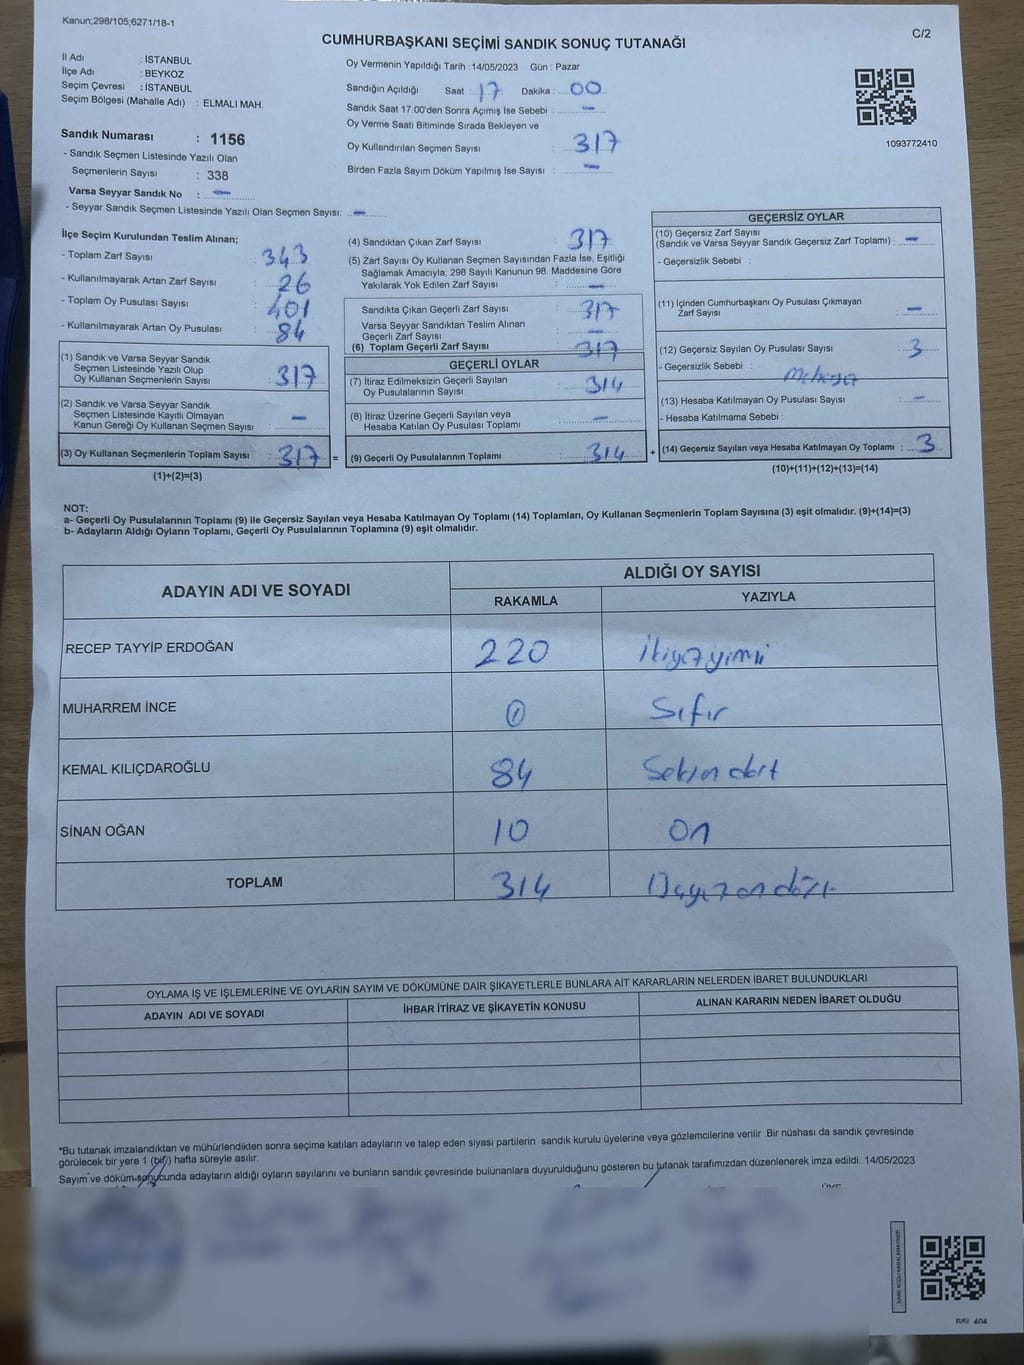 Kanun;298/105;6271/18-1
C/2
CUMHURBAŞKANI SEÇİMİ SANDIK SONUÇ TUTANAĞI
İl Adı : İSTANBUL
İlçe Adı : BEYKOZ
Seçim Çevresi : İSTANBUL
Seçim Bölgesi (Mahalle Adı) : ELMALI MAH.
Sandık Numarası : 1156
- Sandık Seçmen Listesinde Yazılı Olan
Seçmenlerin Sayısı : 338
Varsa Seyyar Sandık No : -
- Seyyar Sandık Seçmen Listesinde Yazılı Olan Seçmen Sayısı: -
Oy Vermenin Yapıldığı Tarih :14/05/2023 Gün : Pazar
Sandığın Açıldığı Saat 17 Dakika : 00
Sandık Saat 17:00'den Sonra Açımış İse Sebebi : -
Oy Verme Saati Bitiminde Sırada Bekleyen ve
Oy Kullandırılan Seçmen Sayısı : 317
Birden Fazla Sayım Döküm Yapılmış İse Sayısı : -
1093772410
İlçe Seçim Kurulundan Teslim Alınan;
- Toplam Zarf Sayısı : 343
- Kullanılmayarak Artan Zarf Sayısı : 26
- Toplam Oy Pusulası Sayısı : 401
- Kullanılmayarak Artan Oy Pusulası : 84
(1) Sandık ve Varsa Seyyar Sandık
Seçmen Listesinde Yazılı Olup
Oy Kullanan Seçmenlerin Sayısı : 317
(2) Sandık ve Varsa Seyyar Sandık
Seçmen Listesinde Kayıtlı Olmayan
Kanun Gereği Oy Kullanan Seçmen Sayısı : -
(3) Oy Kullanan Seçmenlerin Toplam Sayısı : 317 =
(1)+(2)=(3)
(4) Sandıktan Çıkan Zarf Sayısı : 317
(5) Zarf Sayısı Oy Kullanan Seçmen Sayısından Fazla İse, Eşitliği
Sağlamak Amacıyla, 298 Sayılı Kanunun 98. Maddesine Göre
Yakılarak Yok Edilen Zarf Sayısı : -
Sandıkta Çıkan Geçerli Zarf Sayısı : 317
Varsa Seyyar Sandıktan Teslim Alınan
Geçerli Zarf Sayısı : -
(6) Toplam Geçerli Zarf Sayısı : 317
GEÇERLİ OYLAR
(7) İtiraz Edilmeksizin Geçerli Sayılan
Oy Pusulalarının Sayısı : 314
(8) İtiraz Üzerine Geçerli Sayılan veya
Hesaba Katılan Oy Pusulası Toplamı : -
(9) Geçerli Oy Pusulalarının Toplamı : 314 +
GEÇERSİZ OYLAR
(10) Geçersiz Zarf Sayısı
(Sandık ve Varsa Seyyar Sandık Geçersiz Zarf Toplamı) : -
- Geçersizlik Sebebi :
(11) İçinden Cumhurbaşkanı Oy Pusulası Çıkmayan
Zarf Sayısı : -
(12) Geçersiz Sayılan Oy Pusulası Sayısı : 3
- Geçersizlik Sebebi :
(13) Hesaba Katılmayan Oy Pusulası Sayısı : -
- Hesaba Katılmama Sebebi :
(14) Geçersiz Sayılan veya Hesaba Katılmayan Oy Toplamı : 3
(10)+(11)+(12)+(13)=(14)
NOT:
a- Geçerli Oy Pusulalarının Toplamı (9) ile Geçersiz Sayılan veya Hesaba Katılmayan Oy Toplamı (14) Toplamları, Oy Kullanan Seçmenlerin Toplam Sayısına (3) eşit olmalıdır. (9)+(14)=(3)
b- Adayların Aldığı Oyların Toplamı, Geçerli Oy Pusulalarının Toplamına (9) eşit olmalıdır.
ADAYIN ADI VE SOYADI
ALDIĞI OY SAYISI
RAKAMLA YAZIYLA
RECEP TAYYİP ERDOĞAN 220 İkiyüzyirmi
MUHARREM İNCE 0 Sıfır
KEMAL KILIÇDAROĞLU 84 Seksen dört
SİNAN OĞAN 10 On
TOPLAM 314 Üçyüz on dört
OYLAMA İŞ VE İŞLEMLERİNE VE OYLARIN SAYIM VE DÖKÜMÜNE DAİR ŞİKAYETLERLE BUNLARA AİT KARARLARIN NELERDEN İBARET BULUNDUKLARI
ADAYIN ADI VE SOYADI İHBAR İTİRAZ VE ŞİKAYETİN KONUSU ALINAN KARARIN NEDEN İBARET OLDUĞU
*Bu tutanak imzalandıktan ve mühürlendikten sonra seçime katılan adayların ve talep eden siyasi partilerin sandık kurulu üyelerine veya gözlemcilerine verilir .Bir nüshası da sandık çevresinde
görülecek bir yere 1 (bir) hafta süreyle asılır.
Sayım ve döküm sonucunda adayların aldığı oyların sayılarını ve bunların sandık çevresinde bulunanlara duyurulduğunu gösteren bu tutanak tarafımızdan düzenlenerek imza edildi. 14/05/2023
ÜYE